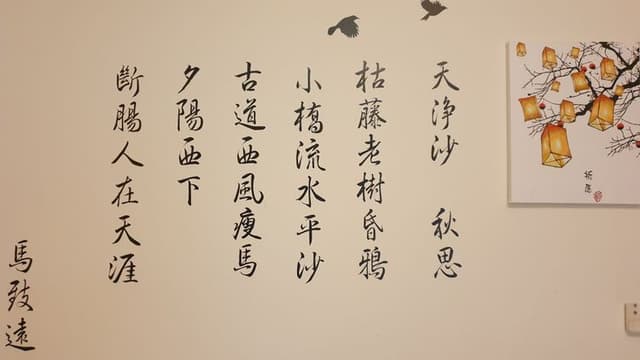 天净沙 秋思
枯藤老樹昏鴉
小橋流水平沙
古道西風瘦馬
夕陽西下
斷腸人在天涯
馬致遠